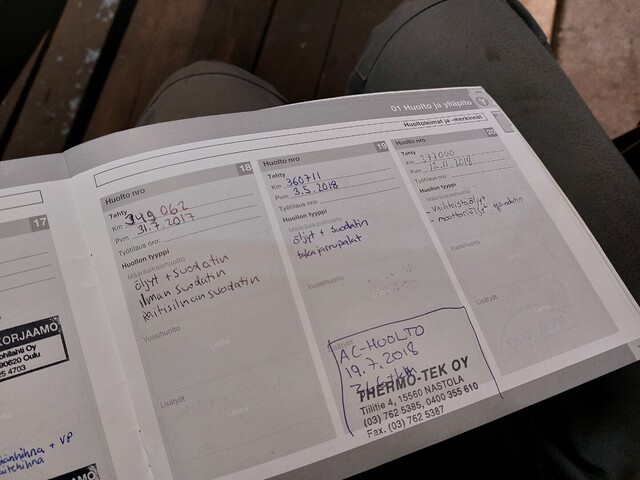 01 Huolto ja ylläpito
Huoltoleimat ja -merkinnät
17
KORJAAMO
90620 Oulu
+ VP
Huolto nro 18
Tehty
Km 349 062
Pvm 31.7.2017
Työtilaus nro:
Huollon tyyppi
Määräaikaishuolto
öljyt + suodatin
ilman suodatin
raitisilman suodatin
Vuosihuolto
Lisätyöt
Huolto nro 19
Tehty
Km 360711
Pvm 3.5.2018
Työtilaus nro:
Huollon tyyppi
Määräaikaishuolto
öljyt + suodatin
takajarrupalat
Vuosihuolto
AC-HUOLTO
19.7.2018
THERMO-TEK OY
Tiilitie 4, 15560 NASTOLA
(03) 762 5385, 0400 355 610
Fax. (03) 762 5387
Huolto nro 20
Tehty
Km 377000
Pvm 12.11.2018
Työtilaus nro:
Huollon tyyppi
Määräaikaishuolto
- vaihteistoöljyt
- moottoriöljyt + suodatin
Vuosihuolto
Lisätyöt